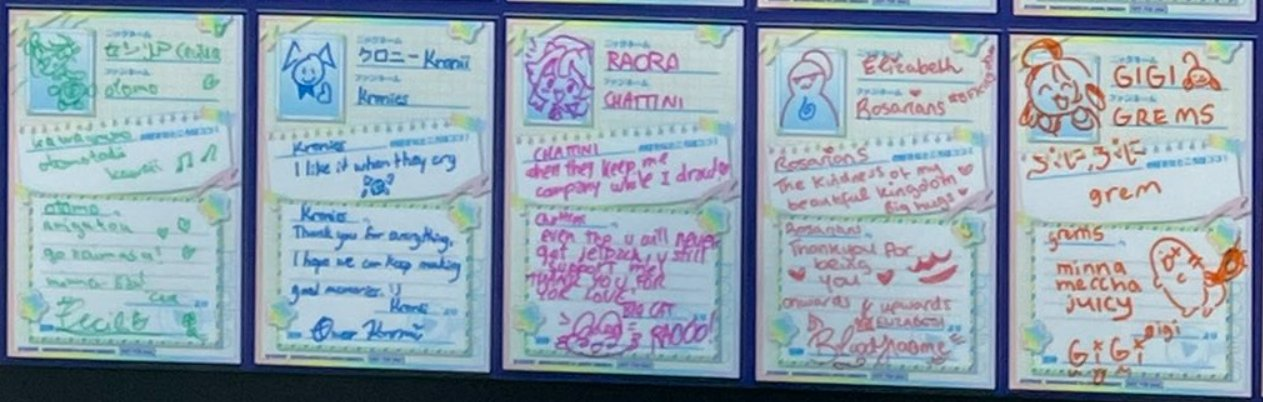 ニックネーム
セシリア Cecilia
ファンネーム
otomo
kawaii
arigatou
gozaimasu!
Cecilia
ニックネーム
クロニー Kronii
ファンネーム
Kronies
Kronies
I like it when they cry
Kronies
Thank you for everything,
I hope we can keep making
good memories. !!
Kronii
Ouro Kronii
ニックネーム
RAORA
ファンネーム
CHATTINI
CHATTINI
when they keep me
company while I draw
Chattini
even tho u will never
get jetpack, u still
support me!
THANK YOU FOR
YOR LOVE!
BIG CAT
RAOOO!
ニックネーム
Elizabeth
ファンネーム
Rosarians
Rosarians
The kindness of my
beautiful kingdom
Big hugs
Rosarians
Thank you for
being
you
onwards & upwards
ELIZABETH
Bloodflame
ニックネーム
GIGI
ファンネーム
GREMS
grem
grems
minna
meccha
juicy
gigi
GiGi